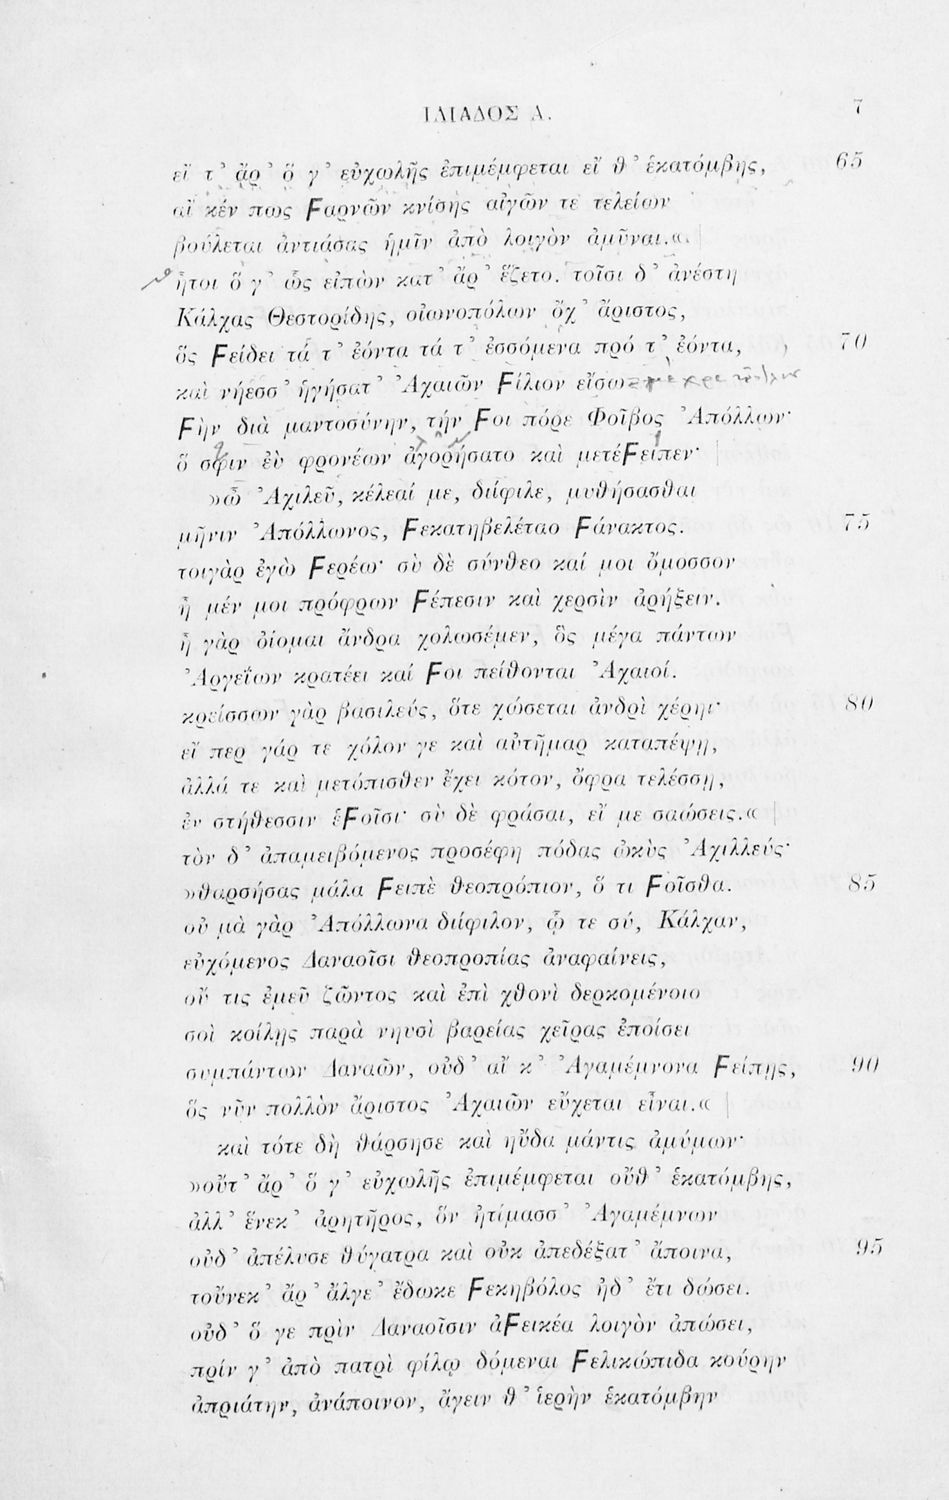 ΙΛΙΑΔΟΣ Α. 7
εἴ τ' ἄρ' ὅ γ' εὐχωλῆς ἐπιμέμφεται εἴ θ' ἑκατόμβης, 65
αἴ κέν πως Ϝαρνῶν κνίσης αἰγῶν τε τελείων
βούλεται ἀντιάσας ἡμῖν ἀπὸ λοιγὸν ἀμῦναι.«
ἦτοι ὅ γ' ὣς εἰπὼν κατ' ἄρ' ἕζετο. τοῖσι δ' ἀνέστη
Κάλχας Θεστορίδης, οἰωνοπόλων ὄχ' ἄριστος,
ὃς Ϝείδει τά τ' ἐόντα τά τ' ἐσσόμενα πρό τ' ἐόντα, 70
καὶ νήεσσ' ἡγήσατ' Ἀχαιῶν Ϝίλιον εἴσω
Ϝὴν διὰ μαντοσύνην, τήν Ϝοι πόρε Φοῖβος Ἀπόλλων·
ὅ σφιν ἐὺ φρονέων ἀγορήσατο καὶ μετέϜειπεν·
»ὦ Ἀχιλεῦ, κέλεαί με, διίφιλε, μυθήσασθαι
μῆνιν Ἀπόλλωνος, Ϝεκατηβελέταο Ϝάνακτος. 75
τοιγὰρ ἐγὼ Ϝερέω· σὺ δὲ σύνθεο καί μοι ὄμοσσον
ἦ μέν μοι πρόφρων Ϝέπεσιν καὶ χερσὶν ἀρήξειν.
ἦ γὰρ ὀίομαι ἄνδρα χολωσέμεν, ὃς μέγα πάντων
Ἀργεΐων κρατέει καί Ϝοι πείθονται Ἀχαιοί.
κρείσσων γὰρ βασιλεύς, ὅτε χώσεται ἀνδρὶ χέρηι· 80
εἴ περ γάρ τε χόλον γε καὶ αὐτῆμαρ καταπέψῃ,
ἀλλά τε καὶ μετόπισθεν ἔχει κότον, ὄφρα τελέσσῃ,
ἐν στήθεσσιν ἑϜοῖσι· σὺ δὲ φράσαι, εἴ με σαώσεις.«
τὸν δ' ἀπαμειβόμενος προσέφη πόδας ὠκὺς Ἀχιλλεύς·
»θαρσήσας μάλα Ϝειπὲ θεοπρόπιον, ὅ τι Ϝοῖσθα. 85
οὐ μὰ γὰρ Ἀπόλλωνα διίφιλον, ᾧ τε σύ, Κάλχαν,
εὐχόμενος Δαναοῖσι θεοπροπίας ἀναφαίνεις,
οὔ τις ἐμεῦ ζῶντος καὶ ἐπὶ χθονὶ δερκομένοιο
σοὶ κοίλῃς παρὰ νηυσὶ βαρείας χεῖρας ἐποίσει
συμπάντων Δαναῶν, οὐδ' αἴ κ' Ἀγαμέμνονα Ϝείπῃς, 90
ὃς νῦν πολλὸν ἄριστος Ἀχαιῶν εὔχεται εἶναι.«
καὶ τότε δὴ θάρσησε καὶ ηὔδα μάντις ἀμύμων·
»οὔτ' ἄρ' ὅ γ' εὐχωλῆς ἐπιμέμφεται οὔθ' ἑκατόμβης,
ἀλλ' ἕνεκ' ἀρητῆρος, ὃν ἠτίμασσ' Ἀγαμέμνων
οὐδ' ἀπέλυσε θύγατρα καὶ οὐκ ἀπεδέξατ' ἄποινα, 95
τοὔνεκ' ἄρ' ἄλγε' ἔδωκε Ϝεκηβόλος ἠδ' ἔτι δώσει.
οὐδ' ὅ γε πρὶν Δαναοῖσιν ἀϜεικέα λοιγὸν ἀπώσει,
πρίν γ' ἀπὸ πατρὶ φίλῳ δόμεναι Ϝελικώπιδα κούρην
ἀπριάτην, ἀνάποινον, ἄγειν θ' ἱερὴν ἑκατόμβην